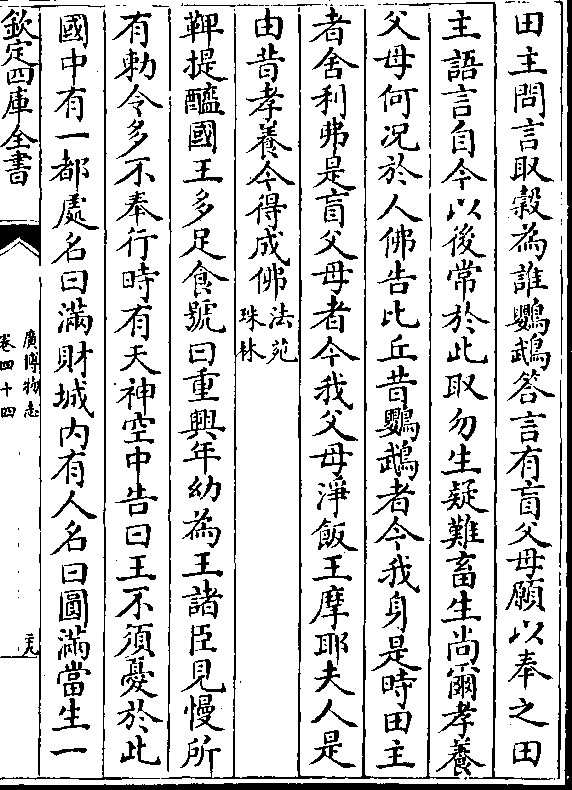 田主問言取糓為誰鸚鵡答言有盲父母願以奉之田
主語言自今以後常於此取勿生疑難畜生尚爾孝養
父母何况於人佛告比丘昔鸚鵡者今我身是時田主
者舍利弗是盲父母者今我父母淨飯王摩耶夫人是
由昔孝養今得成佛法苑
珠林
鞞提醯國王多足食號曰重興年幼為王諸臣見慢所
有勅令多不奉行時有天神空中告曰王不須憂於此
國中有一都處名曰滿財城内有人名曰圓滿當生一
欽定四庫全書
廣博物志
卷四十四
二十九